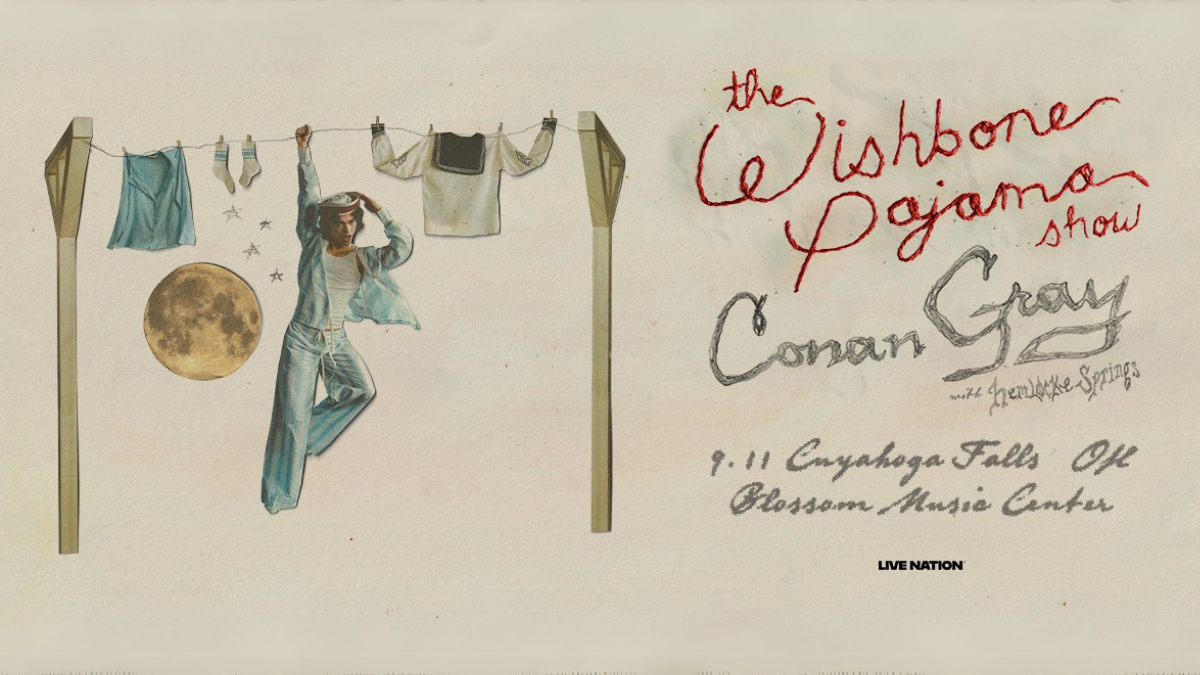 the
Wishbone
Pajama
show
Conan Gray
with Hemlocke Springs
9.11 Cuyahoga Falls OH
Blossom Music Center
LIVE NATION